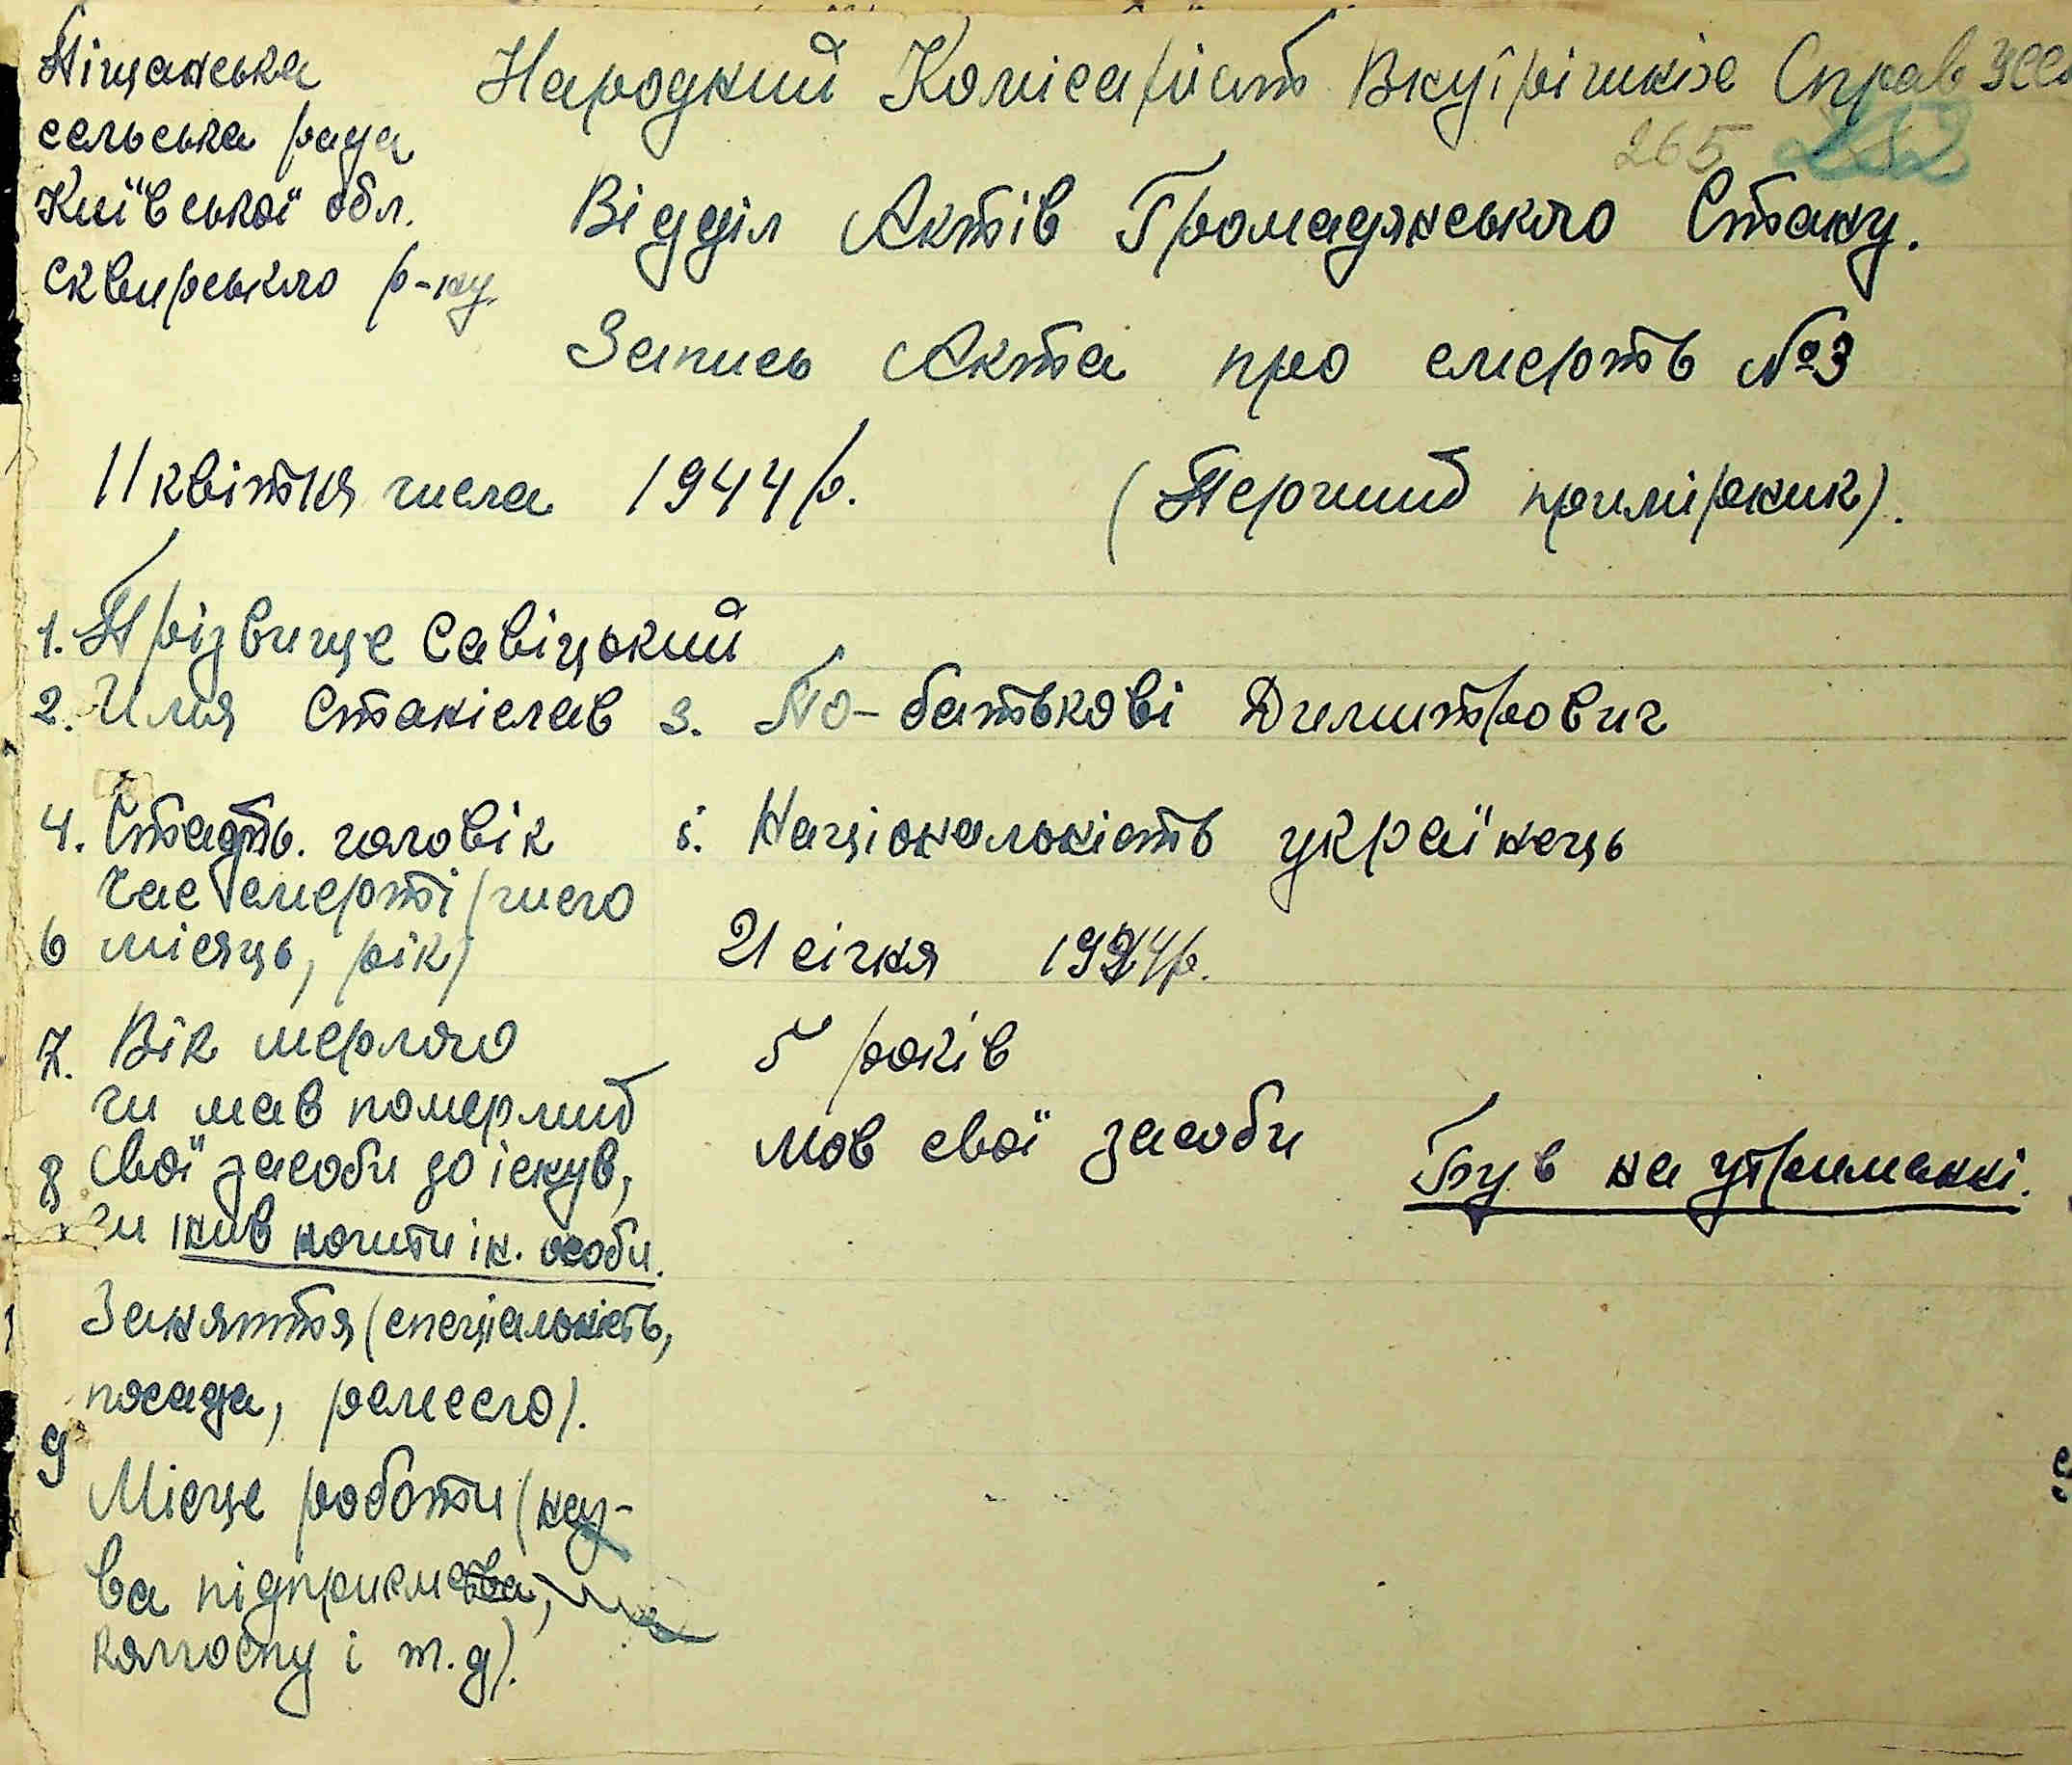 Піщанська
сельська рада
Київської обл.
Сквирського р-ну.
Народний Комісаріат Внутрішніх Справ УССР
265 252
Відділ Актів Громадянського Стану.
Запись Акта про смерть №3
11 квітня числа 1944 р.
(Перший примірник).
1. Прізвище Савіцький
2. Имя Станіслав 3. По-батькові Димитрович
4. Стать. чоловік 5. Національність українець
Час смерті (число
6 місяць, рік) 21 січня 1944р.
7. Вік мерлого 5 років
чи мав померлий
8 свої засоби до існув, мов свої засоби Був на утриманні.
чи жив кошти ін. особи.
Заняття (спеціальність,
посада, ремесло).
9
Місце роботи (наз-
ва підприємства,
колгоспу і т.д).